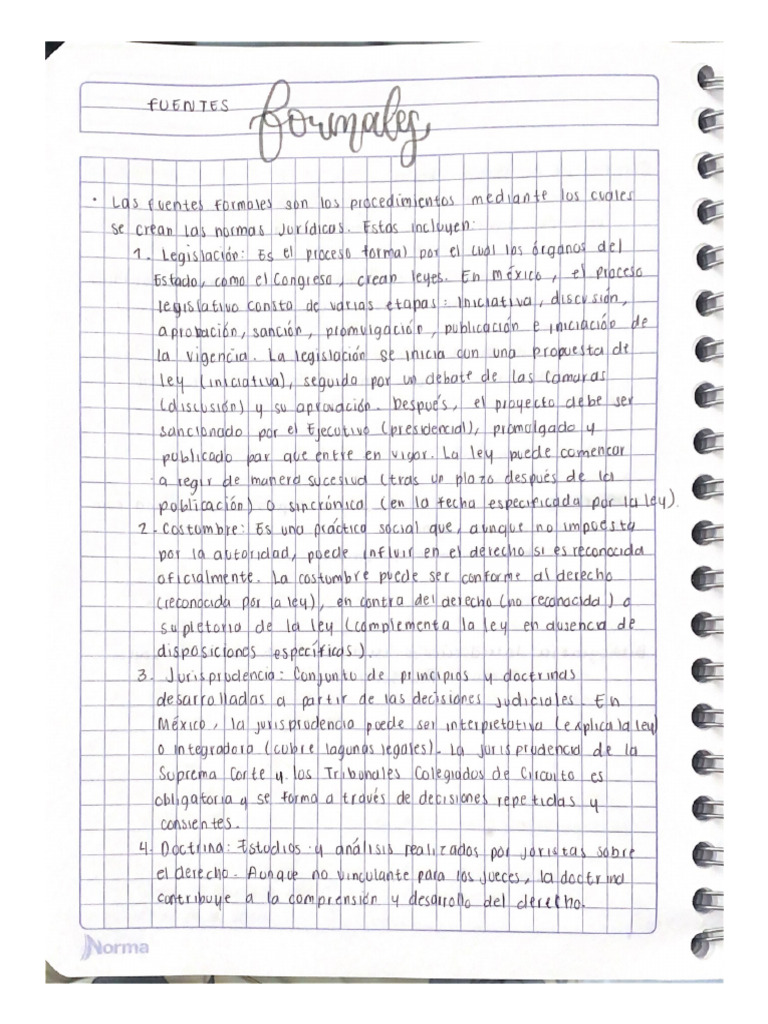 FUENTES formales
• Las fuentes formales son los procedimientos mediante los cuales
se crean las normas jurídicas. Estas incluyen:
1. Legislación: Es el proceso formal por el cual los órganos del
Estado, como el Congreso, crean leyes. En México, el proceso
legislativo consta de varias etapas: Iniciativa, discusión,
aprobación, sanción, promulgación, publicación e iniciación de
la vigencia. La legislación se inicia con una propuesta de
ley (iniciativa), seguida por un debate de las camaras
(discusión) y su aprovación. Después, el proyecto debe ser
sancionado por el Ejecutivo (presidencial), promolgado y
publicado par que entre en vigor. La ley puede comenzar
a regir de manera sucesiva (tras un plazo después de la
poblicación) o sincrónica (en la fecha especificada por la ley).
2. Costumbre: Es una práctica social que, aunque no impuesta
por la autoridad, puede influir en el derecho si es reconocida
oficialmente. La costumbre puede ser conforme al derecho
(reconocida por la ley), en contra del derecho (no reconocida) o
supletoria de la ley (complementa la ley en ausencia de
disposiciones específicas).
3. Jurisprudencia: Conjunto de principios y doctrinas
desarrolladas a partir de las decisiones judiciales. En
México, la jurisprudencia puede ser interpretativa (explica la ley)
o integradora (cubre lagunas legales). La jurisprudencia de la
Suprema Corte y los Tribonales Colegiados de Circuito es
obligatoria y se forma a través de decisiones repetidas y
consientes.
4. Doctrina: Estudios y análisis realizados por joristas sobre
el derecho. Aunque no vinculante para los jueces, la doctrina
contribuye a la comprensión y desarollo del derecho.
Norma